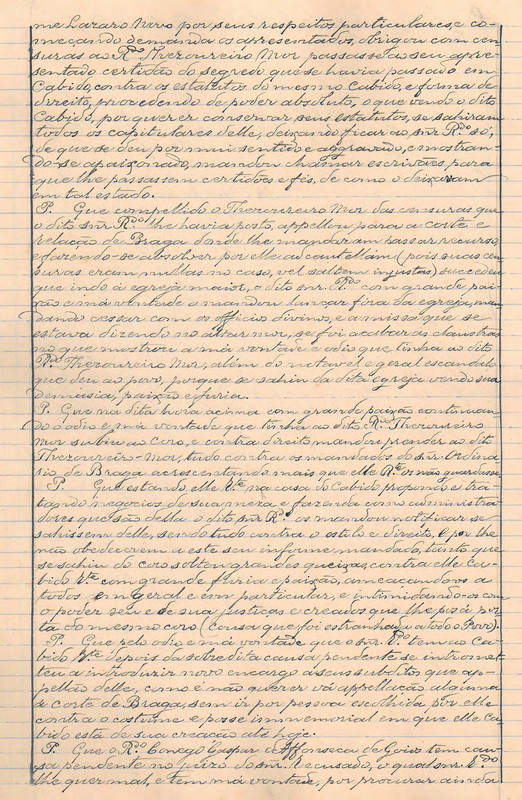 me Lazaro Novo por seus respeitos particulares, e co-
meçando demanda os apresentados, obrigou com cen-
suras ao Rdo Thezoureiro Mor passasse ao seu apre-
sentado certidão do segredo que se havia passado em
Cabido, contra os estatutos do mesmo Cabido, e forma de
direito, procedendo de poder absoluto, o que vendo o dito
Cabido, por querer conservar seus estatutos, se sahiram
todos os capitulares delle, deixando ficar ao snr Rdo só,
de que se deu por mui sentido e aggravado, e mostran-
do-se apaixonado, mandou chamar escrivães para
que lhe passassem certidões e fés, de como o deixavam
em tal estado.
P. Que compellido o Thezoureiro Mor das censuras que
o dito snr Rdo lhe havia posto, appellou para a corte e
relação de Braga donde lhe mandaram passar recurso,
e fazendo-se absolver por elle ad cautellam (pois suas cen-
suras eram nullas no caso, vel saltem injustas) succedeu
que indo á egreja maior, o dito snr. Rdo com grande pai-
xão e má vontade o mandou lançar fóra da egreja, man-
dando cessar com os officios divinos, e a missa que se
estava dizendo no altar mor, se foi acabar ás claustras
no que mostrou a má vontade e odio que tinha ao dito
Rdo Thezoureiro Mor, além do notavel e geral escandalo
que deu ao povo, porque se sahiu da dita egreja vendo sua
demasia, paixão e furia.
P. Que na dita hora acima com grande paixão continuan-
do o odio e má vontade que tinha ao dito Rdo Thezoureiro
Mor subiu ao coro, e contra direito mandou prender ao dito
Thezoureiro-Mor, tudo contra os mandados do snr Ordina-
rio de Braga acrescentando mais que elle Rdo os não guardasse.
P. Que estando elle Rte na casa do Cabido propondo e tra-
tando negocios de sua meza e fazenda como administra-
dores que são della o dito snr Rdo os mandou notificar se
sahissem delle, sendo tudo contra o estilo e direito, e por lhe
não obedecerem a este seu informe mandado, tanto que
se sahiu do coro soltou grandes queixas, contra elle Ca-
bido Rte com grande furia e paixão, ameaçando-os a
todos em geral e em particular, e intimidando-os com
o poder seu e de sua justiças e creados que lhe pôs á por-
ta do mesmo coro (cousa que foi estranhada a todo o Povo).
P. Que pelo odio e má vontade que o snr. Rdo tem ao Ca-
bido Rte depois da sobredita causa pendente se intromet-
teu a introduzir novo encargo a seus subditos que ap-
pellão delle, como é não querer vá appellação alguma
á corte de Braga, sem ir por pessoa escolhida por elle
contra o costume e posse immemorial em que elle Ca-
bido está de sua creação até hoje.
P. Que o Rdo Conego Gaspar d'Affonseca de Goios tem cau-
sa pendente no juizo do snr. Recusado, o qual snr. Rdo
lhe quer mal, e tem má vontade, por procurar ainda